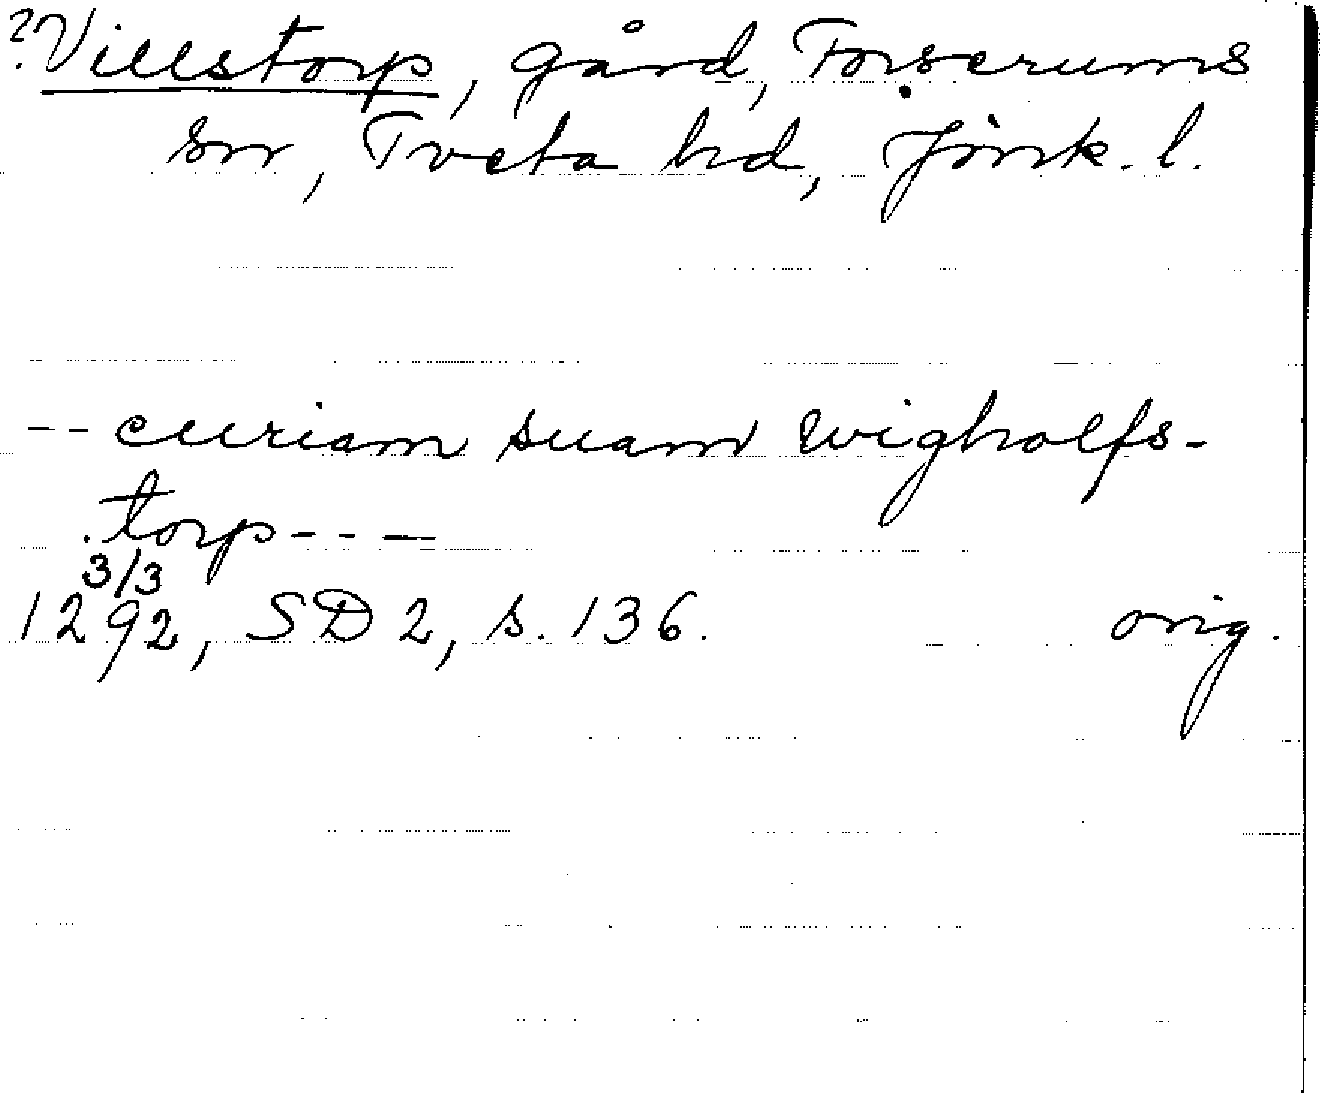 ?Villstorp, gård, Forserums
sn, Tveta hd, Jönk. l.
-- curiam suam wigholfs-
torp - - —
3/3
1292, SD 2, s. 136. orig.